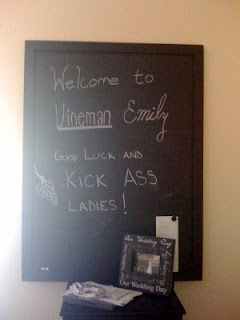 Welcome to
Vineman Emily
Good Luck and
Kick Ass
Ladies!
Our Wedding Day
Our Wedding Day